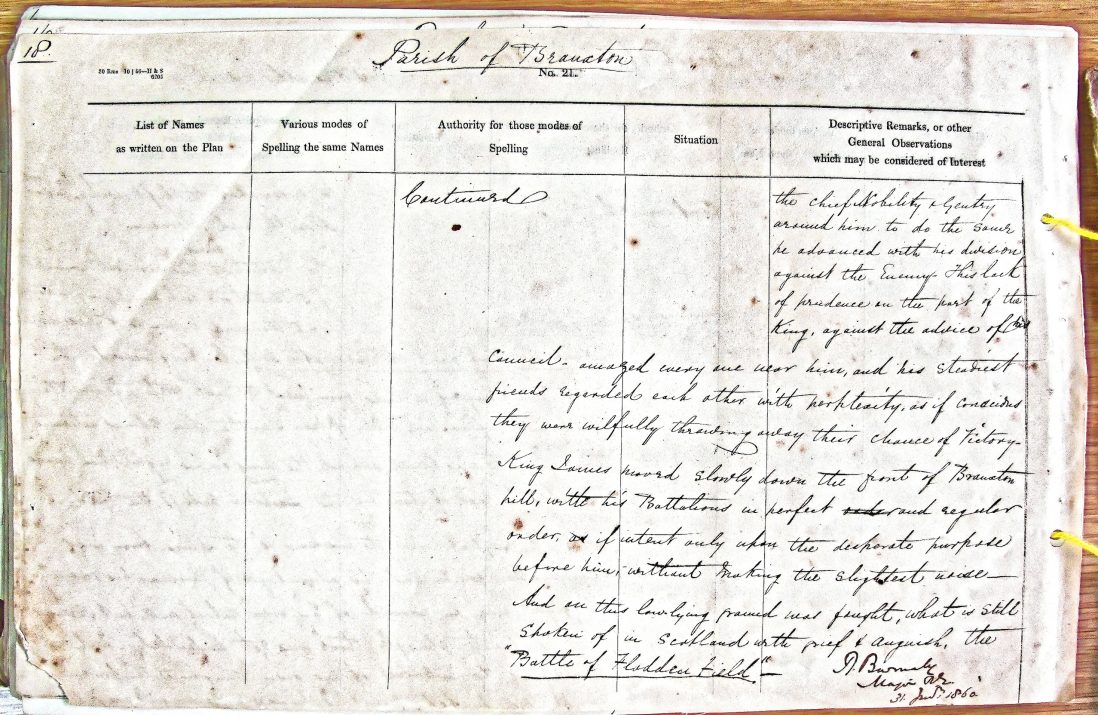 18.
Parish of Branxton
No. 21.
List of Names
as written on the Plan
Various modes of
Spelling the same Names
Authority for those modes of
Spelling
Situation
Descriptive Remarks, or other
General Observations
which may be considered of Interest
Continued
the chief Nobility & Gentry
around him to do the same
he advanced with his division
against the Enemy. This lack
of prudence on the part of the
King, against the advice of his
Council - amazed every one near him, and his steadiest
friends regarded each other with perplexity, as if conscious
they were wilfully throwing away their chance of Victory -
King James moved slowly down the front of Branxton
hill, with his Battalions in perfect and regular
order, as if intent only upon the desperate purpose
before him, without making the slightest noise -
And on this lowlying ground was fought, what is still
spoken of in Scotland with grief & anguish, the
"Battle of Flodden Field" -
Burnaby
Major RE.
31 Jany. 1860